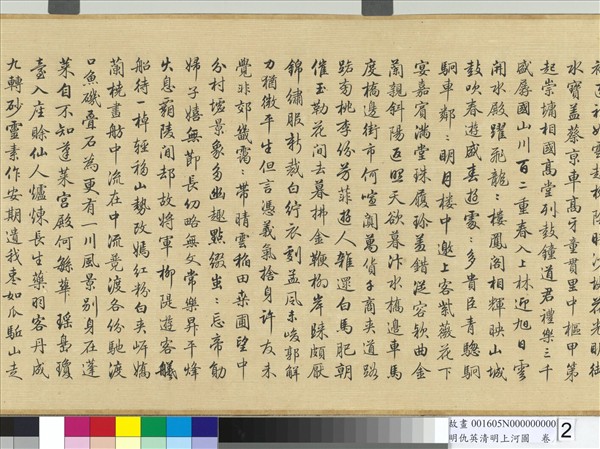 水寶蓋蔡京車高牙童貫里中樞甲第
起崇墉相國高堂列鼓鐘道君禮樂三千
盛虜國山川百二重春入上林迎旭日雲
開水殿躍飛龍:樓鳳閣相輝映山城
鼓吹春遊盛春遊霧:多貴臣青驄駟
駟車鄰:明月樓中邀上客紫薇花下
宴嘉賓滿堂珠履珍羞錯從容軟曲金
蘭親斜陽返照天欲暮汴水橋邊車馬
度橋邊街市何喧闐萬貨子商夾道路
南桃李份芳菲遊人雜遝白馬肥朝
催玉勒花間去暮拂金鞭柳岸歸頗厭
錦繡服新裁白紵衣劇孟風未峻郭解
力猶微平生但言憑義氣捨身許友未
覺非郊畿靄:帶晴雲稻田桑圃望中
分村墟景象多幽趣點綴蚩:忘帝勛
婦子嬉無節長幼略無文常樂昇平烽
火息霸陵閒却故將軍柳隄遊客艤
船待一棹輕移山勢改嫣紅粉白夾岍嬌
蘭橈畫舫中流在中流竟渡各份馳渡
口魚磯疊石為更有一川風景別身在蓬
萊自不知蓬萊宮殿何緜華瑤島瓊
臺入座賒仙人爐煉長生藥羽客丹成
九轉砂靈素作安期遺我棗如瓜駈山走
故畫 001605N000000000
明仇英清明上河圖 卷
2